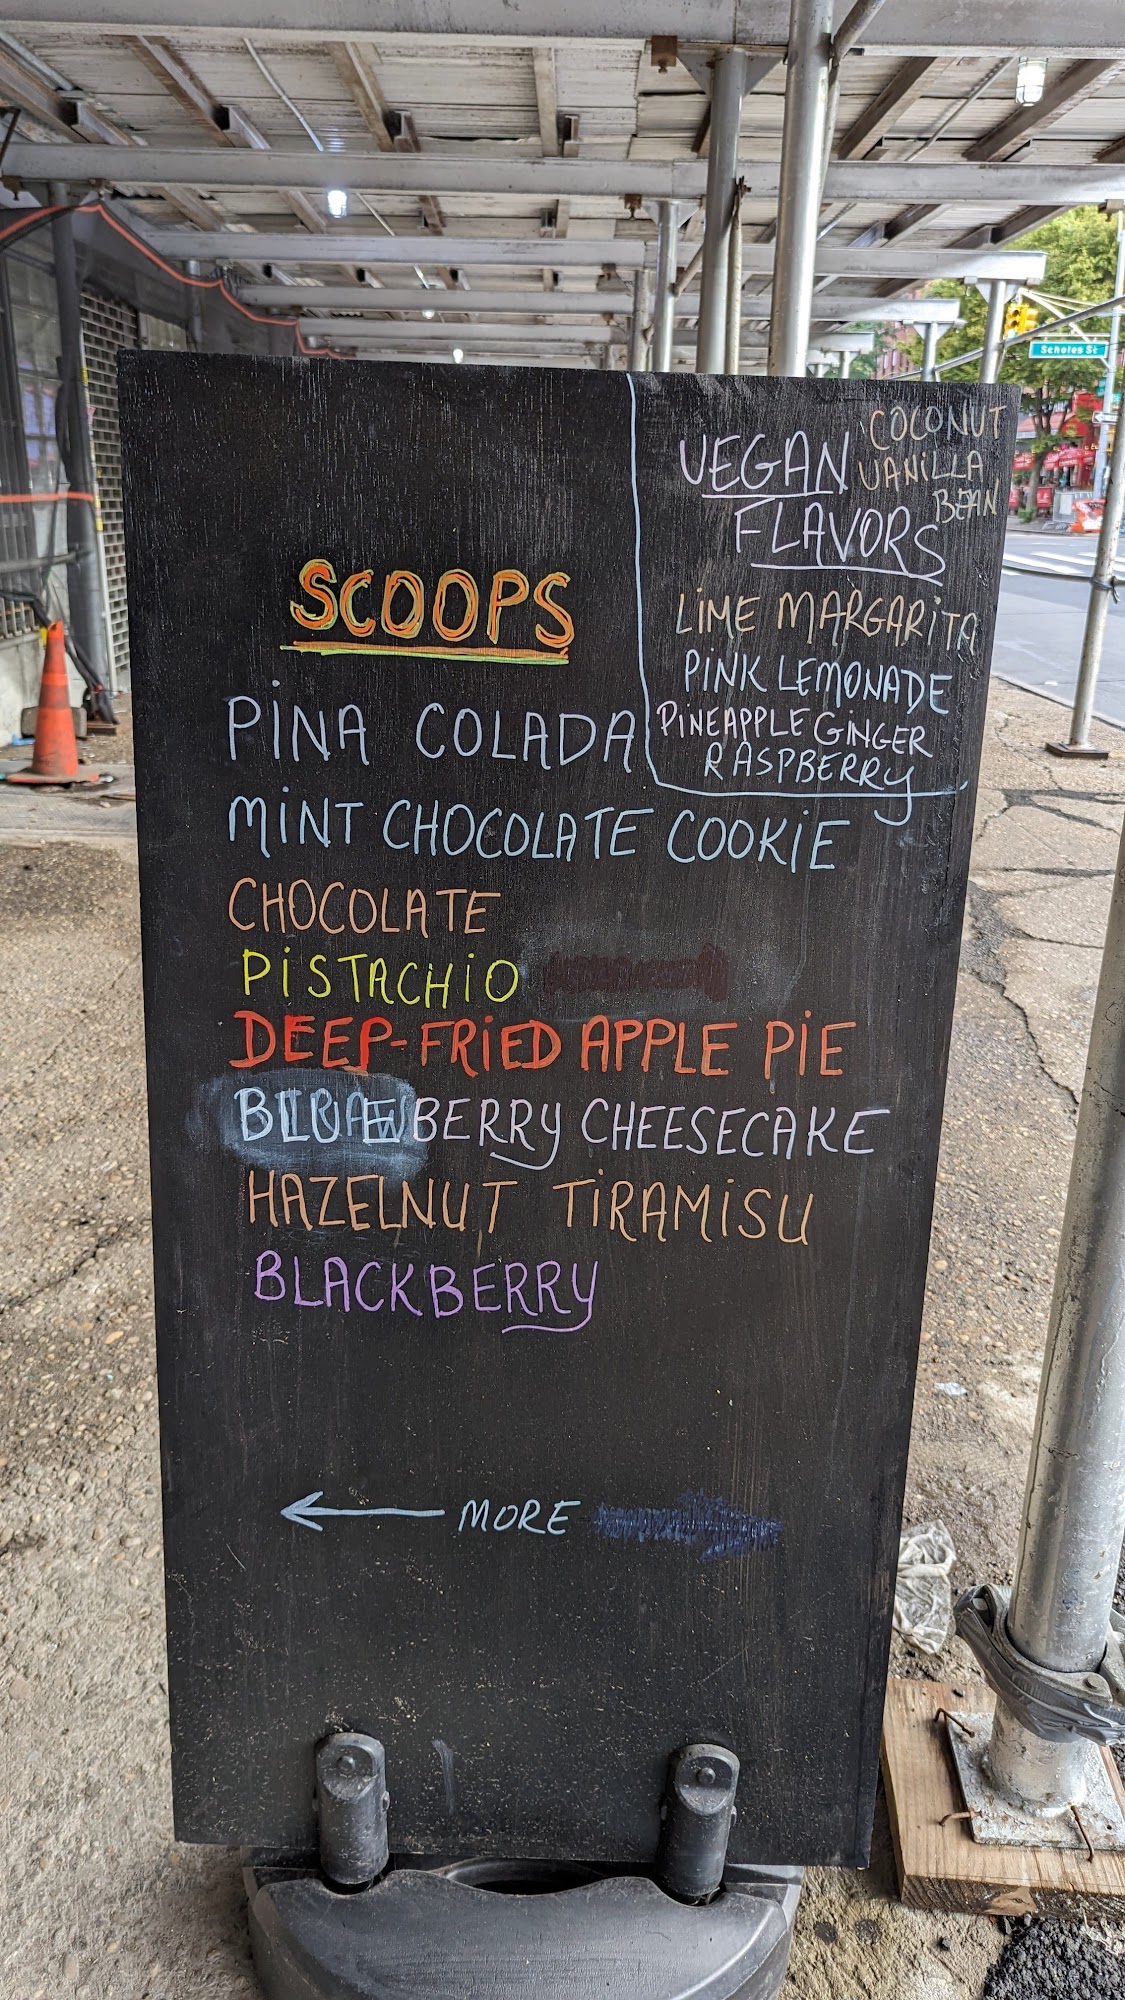 Scholes St
VEGAN
FLAVORS
COCONUT
VANILLA
BEAN
LIME MARGARITA
PINK LEMONADE
PINEAPPLE GINGER
RASPBERRY
SCOOPS
PINA COLADA
MINT CHOCOLATE COOKIE
CHOCOLATE
PISTACHIO
DEEP-FRIED APPLE PIE
BLUEBERRY CHEESECAKE
HAZELNUT TIRAMISU
BLACKBERRY
MORE